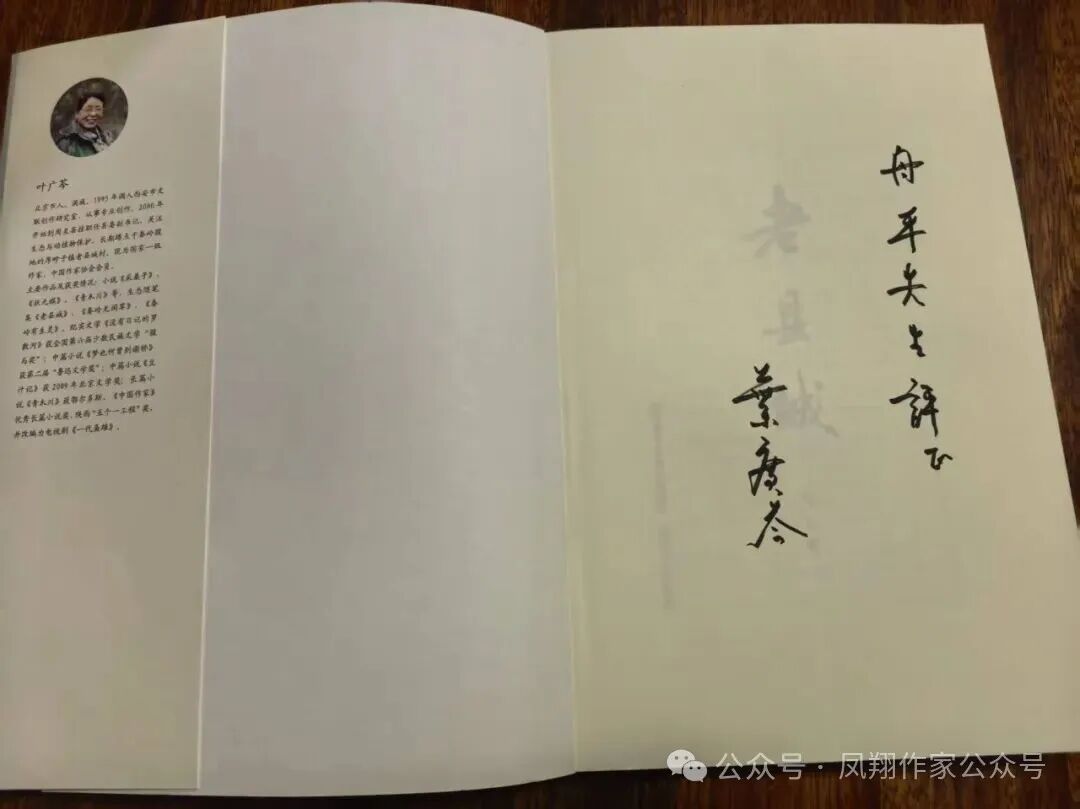 叶广芩
北京市人，满族，1995年调入西安市文
联创作研究室，从事专业创作。2000年
开始到周至县挂职任县委副书记，关注
生态与动植物保护，长期蹲点于秦岭腹
地的厚畛子镇老县城村。现为国家一级
作家，中国作家协会会员。
主要作品及获奖情况：小说《采桑子》、
《状元媒》、《青木川》等，生态随笔
集《老县城》、《秦岭无闲草》、《秦
岭有生灵》。纪实文学《没有日记的罗
敷河》获全国第六届少数民族文学“骏
马奖”；中篇小说《梦也何曾到谢桥》
获第二届“鲁迅文学奖”；中篇小说《豆
汁记》获2009年北京文学奖；长篇小
说《青木川》获鄂尔多斯、《中国作家》
优秀长篇小说奖、陕西“五个一工程”奖，
并改编为电视剧《一代枭雄》。
舟平先生評正
葉廣芩
老县城
公众号·凤翔作家公众号